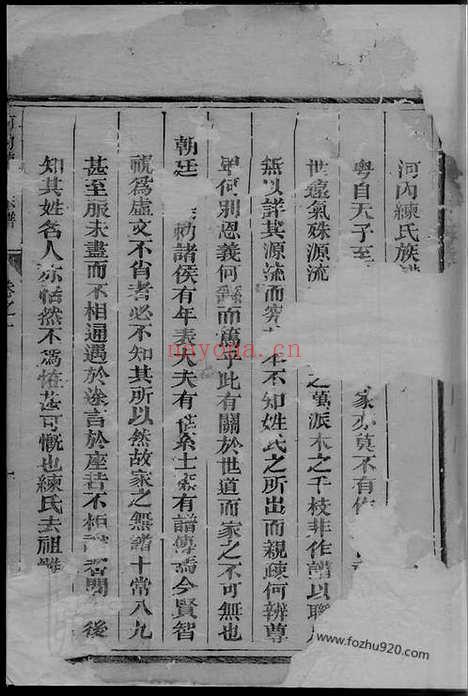 河內練氏族譜
粵自天子至 家亦莫不有作
世遠氣殊源流 之萬派木之千枝非作譜以聯
無以詳其源流而 不知姓氏之所出而親疎何辨尊
卑何別恩義何 而篤乎此有關於世道而家之不可無也
朝廷 勅諸侯有年表大夫有 系士家有譜傳焉今賢智
視為虛文不省者必不知其所以然故家之無譜十常八九
甚至服未盡而不相通遇於塗言於座若不相 若聞 後
知其姓名人亦恬然不為怪甚可慨也練氏去祖
卷之一
nayona.cn
www.fozhu920.com